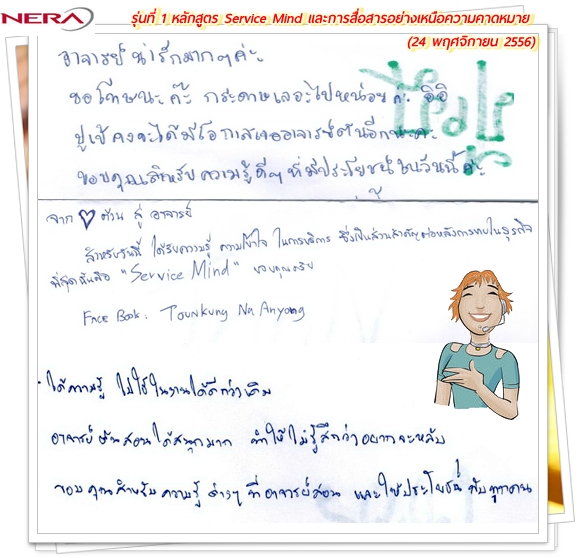 NERA
รุ่นที่ 1 หลักสูตร Service Mind และการสื่อสารอย่างเหนือความคาดหมาย
(24 พฤศจิกายน 2556)
อาจารย์น่ารักมากๆค่ะ
ขอโทษนะค๊ะ กระดาษเลอะไปหน่อยค่ะ อิอิ
ปูเป้คงจะได้มีโอกาสเจออาจารย์ต้นอีกนะคะ
ขอบคุณสำหรับความรู้ดีๆ ที่มีประโยชน์ในวันนี้ค่ะ
จาก ต้วน สู่ อาจารย์
สำหรับวันนี้ ได้รับความรู้ ความเข้าใจ ในการบริการ ซึ่งเป็นส่วนสำคัญ ในธุรกิจ
ที่สุดนั่นคือ "Service Mind" ขอบคุณครับ
Face Book. Tounkung Na Anyong
ได้ความรู้ ไปใช้ในงานได้ดีกว่าเดิม
อาจารย์ต้นสอนได้สนุกมาก ทำให้ไม่รู้สึกว่าอยากจะหลับ
ขอบคุณสำหรับความรู้ ต่างๆ ที่อาจารย์สอน และให้ประโยชน์กับทุกคน